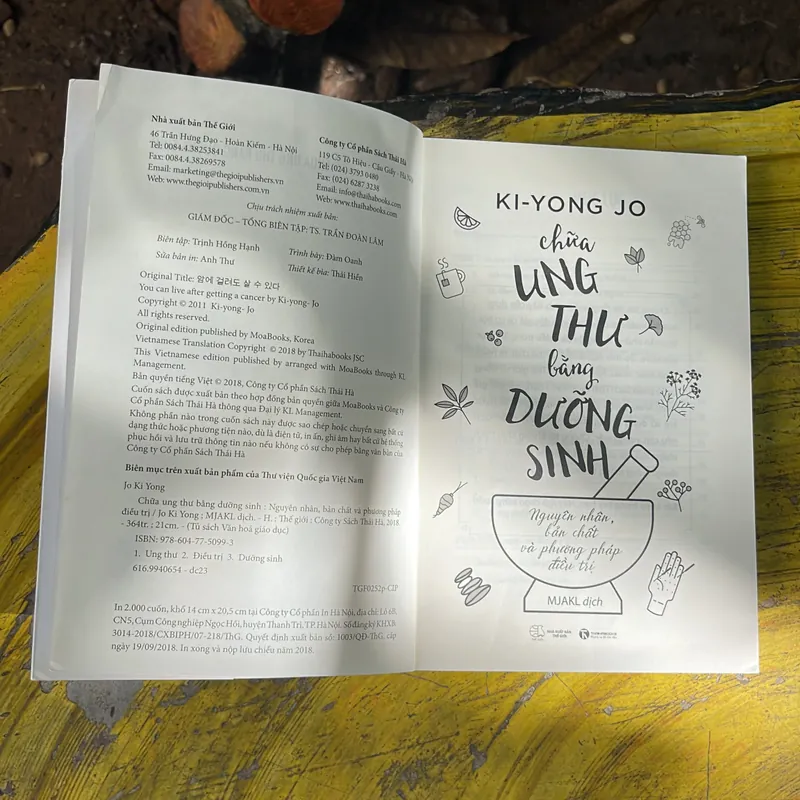 Nhà xuất bản Thế Giới
46 Trần Hưng Đạo - Hoàn Kiếm - Hà Nội
Tel: 0084.4.38253841
Fax: 0084.4.38269578
Email: marketing@thegioipublishers.vn
Web: www.thegioipublishers.com.vn
Công ty Cổ phần Sách Thái Hà
119 C5 Tô Hiệu - Cầu Giấy - Hà Nội
Tel: (024) 3793 0480
Fax: (024) 6287 3238
Email: info@thaihabooks.com
Web: www.thaihabooks.com
Chịu trách nhiệm xuất bản:
GIÁM ĐỐC – TỔNG BIÊN TẬP: TS. TRẦN ĐOÀN LÂM
Biên tập: Trịnh Hồng Hạnh
Trình bày: Đàm Oanh
Sửa bản in: Anh Thư
Thiết kế bìa: Thái Hiền
Original Title: 암에 걸려도 살 수 있다
You can live after getting a cancer by Ki-yong- Jo
Copyright © 2011 Ki-yong- Jo
All rights reserved.
Original edition published by MoaBooks, Korea
Vietnamese Translation Copyright © 2018 by Thaihabooks JSC
This Vietnamese edition published by arranged with MoaBooks through KL
Management.
Bản quyền tiếng Việt © 2018, Công ty Cổ phần Sách Thái Hà
Cuốn sách được xuất bản theo hợp đồng bản quyền giữa MoaBooks và Công ty
Cổ phần Sách Thái Hà thông qua Đại lý KL Management.
Không phần nào trong cuốn sách này được sao chép hoặc chuyển sang bất cứ
dạng thức hoặc phương tiện nào, dù là điện tử, in ấn, ghi âm hay bất cứ hệ thống
phục hồi và lưu trữ thông tin nào nếu không có sự cho phép bằng văn bản của
Công ty Cổ phần Sách Thái Hà
Biên mục trên xuất bản phẩm của Thư viện Quốc gia Việt Nam
Jo Ki Yong
Chữa ung thư bằng dưỡng sinh : Nguyên nhân, bản chất và phương pháp
điều trị / Jo Ki Yong ; MJAKL dịch. - H. : Thế giới ; Công ty Sách Thái Hà, 2018.
- 364tr. ; 21cm. - (Tủ sách Văn hoá giáo dục)
ISBN: 978-604-77-5099-3
1. Ung thư 2. Điều trị 3. Dưỡng sinh
616.9940654 - dc23
TGF0252p-CIP
In 2.000 cuốn, khổ 14 cm x 20,5 cm tại Công ty Cổ phần In Hà Nội, địa chỉ: Lô 6B,
CN5, Cụm Công nghiệp Ngọc Hồi, huyện Thanh Trì, TP. Hà Nội. Số đăng ký KHXB:
3014-2018/CXBIPH/07-218/ThG. Quyết định xuất bản số: 1003/QĐ-ThG, cấp
ngày 19/09/2018. In xong và nộp lưu chiểu năm 2018.
KI-YONG JO
chữa
UNG
THƯ
bằng
DƯỠNG
SINH
Nguyên nhân,
bản chất
và phương pháp
điều trị
MJAKL dịch